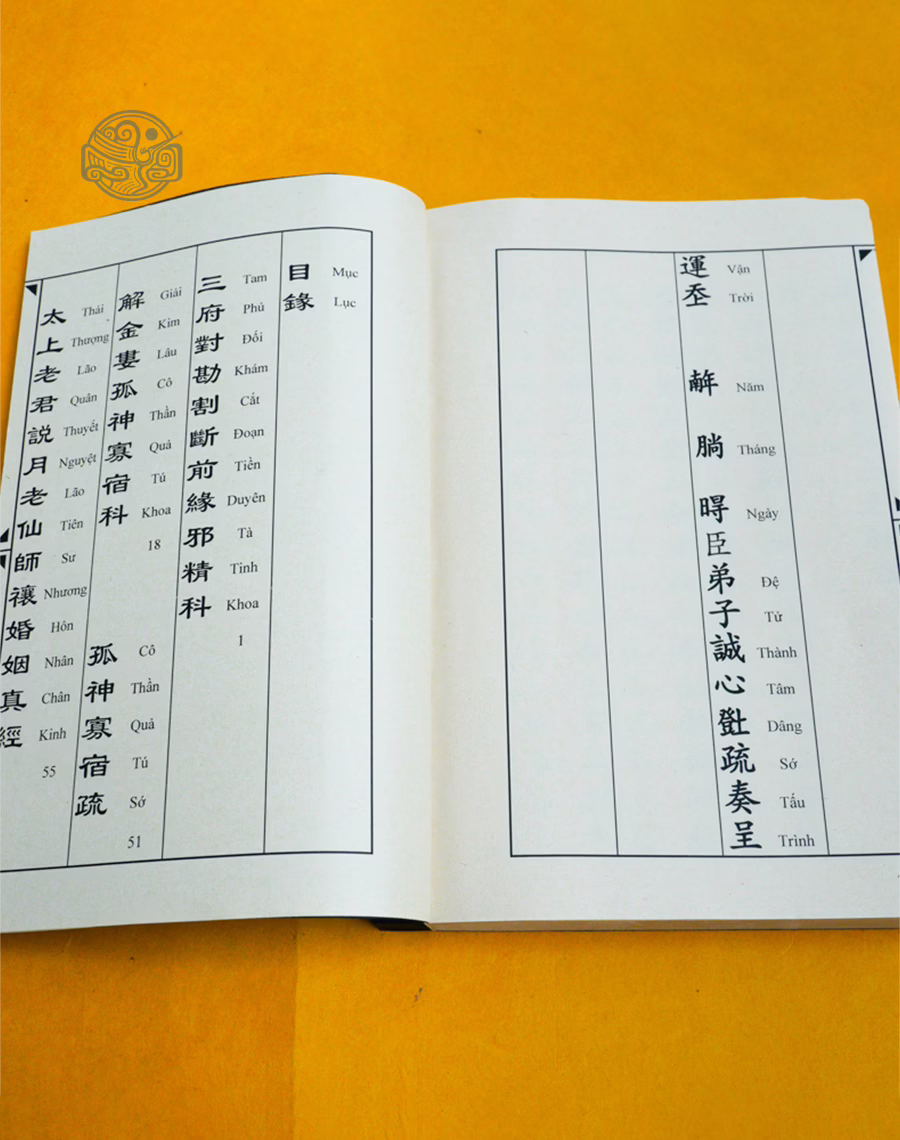 運𡗶 𢆥 𣎃 𣈜 臣弟子誠心𤼸疏奏呈
Vận Trời Năm Tháng Ngày Đệ Tử Thành Tâm Dâng Sớ Tấu Trình
目錄
Mục Lục
三府對勘割斷前緣邪精科
Tam Phủ Đối Khám Cắt Đoạn Tiền Duyên Tà Tinh Khoa 1
解金婁孤神寡宿科
Giải Kim Lâu Cô Thần Quả Tú Khoa 18
孤神寡宿疏
Cô Thần Quả Tú Sớ 51
太上老君説月老仙師禳婚姻真經
Thái Thượng Lão Quân Thuyết Nguyệt Lão Tiên Sư Nhương Hôn Nhân Chân Kinh 55